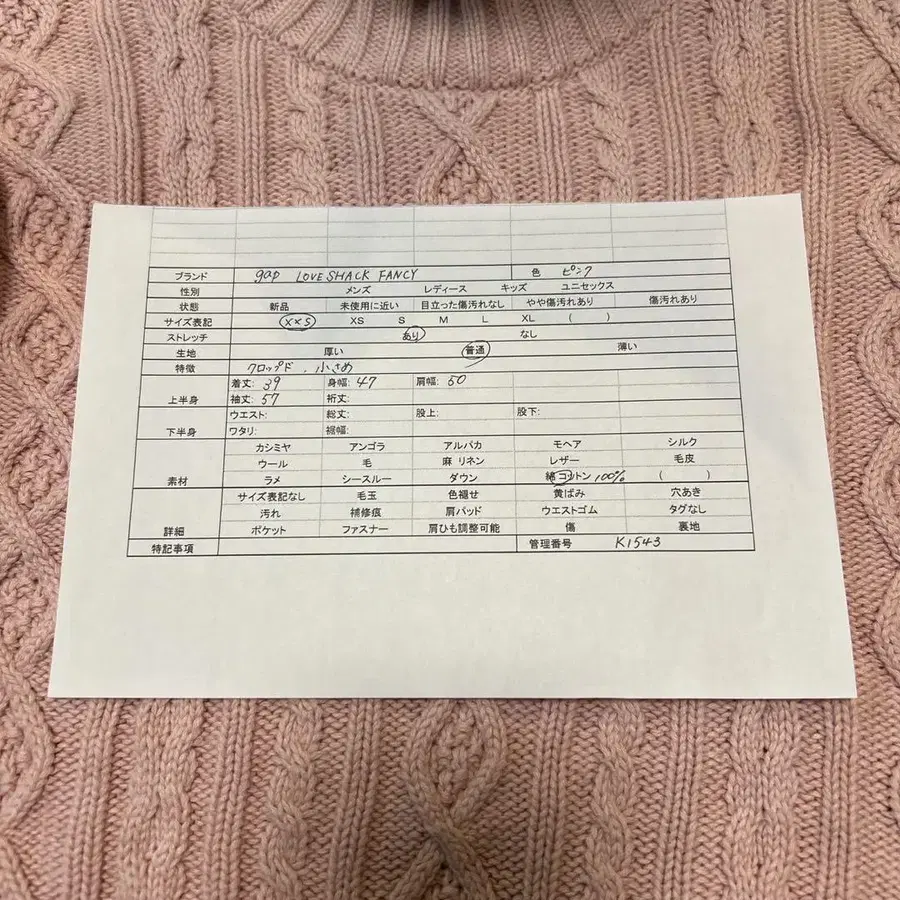 ブランド gap LOVE SHACK FANCY 色 ピンク
性別 メンズ レディース キッズ ユニセックス
状態 新品 未使用に近い 目立った傷汚れなし やや傷汚れあり 傷汚れあり
サイズ表記 XXS XS S M L XL ( )
ストレッチ あり なし
生地 厚い 普通 薄い
特徴 クロップド、小さめ
上半身 着丈: 39 身幅: 47 肩幅: 50
袖丈: 57 裄丈:
下半身 ウエスト: 総丈: 股上: 股下:
ワタリ: 裾幅:
素材 カシミヤ アンゴラ アルパカ モヘア シルク
ウール 毛 麻 リネン レザー 毛皮
ラメ シースルー ダウン 綿 コットン 100% ( )
詳細 サイズ表記なし 毛玉 色褪せ 黄ばみ 穴あき
汚れ 補修痕 肩パッド ウエストゴム タグなし
ポケット ファスナー 肩ひも調整可能 傷 裏地
特記事項 管理番号 K1543